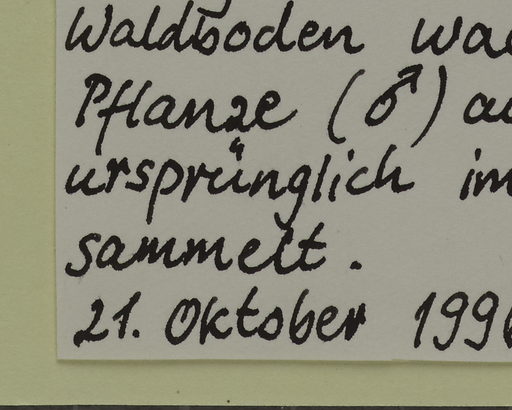 Waldboden
Pflanze (♂)
ursprünglich im
sammelt.
21. Oktober 199